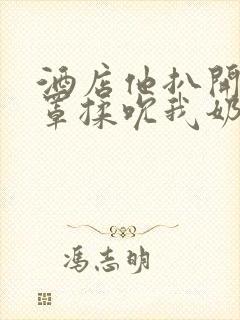 酒店他扒开
罩揉吮我奶
冯志明